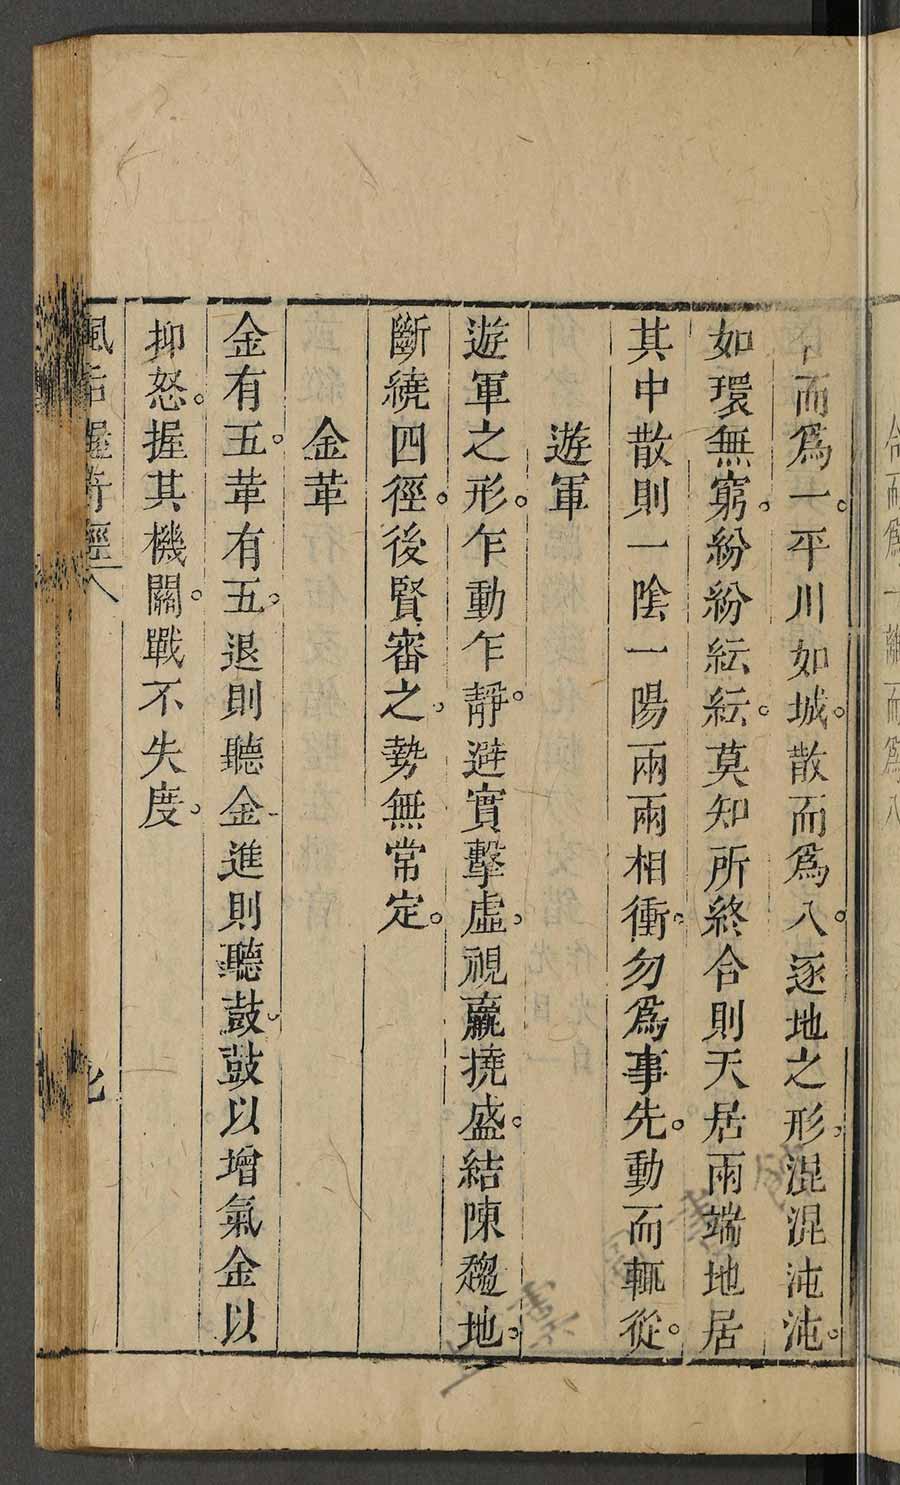 而爲一。平川如城。散而爲八。逐地之形。混混沌沌。
如環無窮。紛紛紜紜。莫知所終合則天居兩端地居
其中散則一陰一陽兩兩相衝。勿爲事先。動而輒從。
遊軍
遊軍之形。乍動乍靜。避實擊虛。視羸撓盛。結陳趨地。
斷繞四徑。後賢審之。勢無常定。
金革
金有五。革有五。退則聽金進則聽鼓。鼓以增氣金以
抑怒。握其機關。戰不失度。
風后握奇經 八